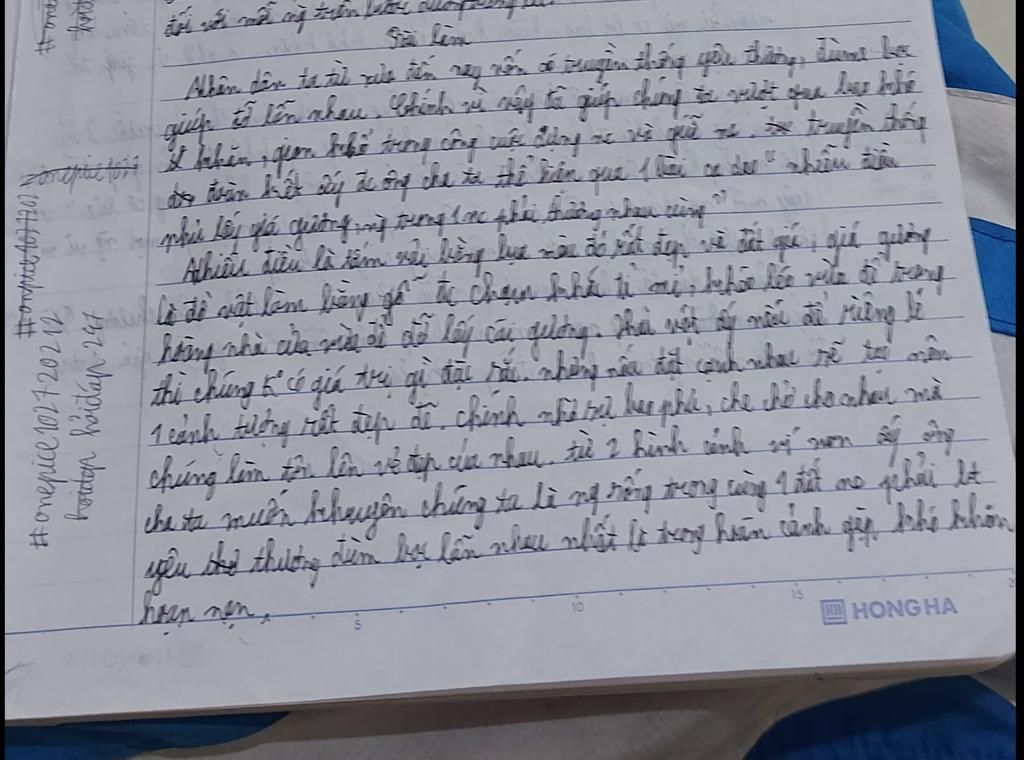 đối với mỗi ng trên
Bài làm
Nhân dân ta từ xưa đến nay vốn có truyền thống yêu thương, đùm bọc
giúp đỡ lẫn nhau. Chính vì này đã giúp chúng ta vượt qua bao khó
khăn, gian khổ trong công cuộc dựng nc và giữ nc. truyền thống
đoàn kết ấy đc ông cha ta thể hiện qua 1 câu ca dao "nhiễu điều
phủ lấy giá gương, ng trong 1 nc phải thương nhau cùng"
Nhiễu điều là tấm vải bằng lụa màu đỏ rất đẹp và đắt giá, giá gương
là đồ vật làm bằng gỗ đc chạm khắc tỉ mỉ, khéo léo vừa để trong
nhà của vừa để đỡ lấy cái gương. Hai vật ấy nếu để riêng lẻ
thì chúng k° có giá trị gì đặc sắc. nhưng nếu đặt cạnh nhau sẽ tạo nên
1 cảnh tượng rất đẹp đẽ. chính nhờ sự bao phủ, che chở cho nhau mà
chúng làm tôn lên vẻ đẹp của nhau. từ 2 hình ảnh ấy ông
cha ta muốn khuyên chúng ta là ng sống trong cùng 1 đất nc phải bt
yêu thương đùm bọc lẫn nhau nhất là trong hoàn cảnh gặp khó khăn
hoạn nạn.
5 10 15
HONG HA
#onepice1027202212
hoidap hỏi đáp 247
#onepice1027702
#onepice1027